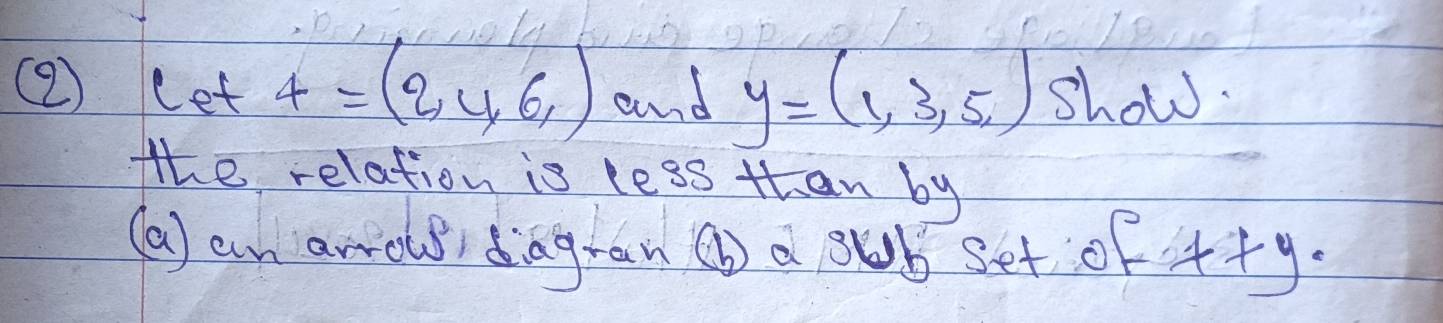 (2) Let + = (2, 4, 6,) and y = (1, 3, 5,) Show.
the relation is less than by
(a) an arrow diagran (b) a sub set of + + y.